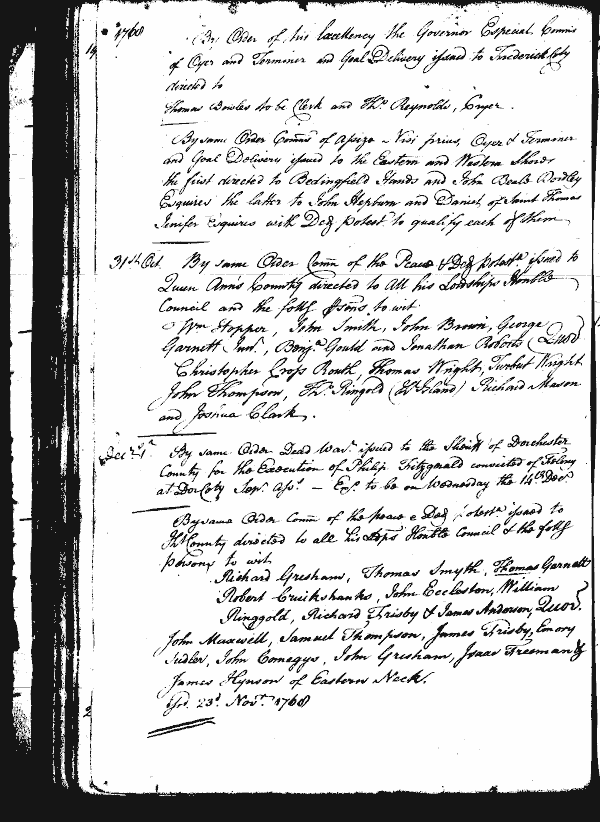 1768
By Order of his Excellency the Governor Especial Comms
of Oyer and Terminer and Goal Delivery issued to Frederick Coty
directed to
Thomas Bowles to be Clerk and Thos. Reynolds, Cryer.
By same Order Comms of Assize Nisi prius, Oyer & Terminer
and Goal Delivery issued to the Eastern and Western Shores
the first directed to Bedingfield Hands and John Beale Bordley
Esquires the latter to John Hepburn and Daniel of Saint Thomas
Jenifer Esquires with Ded potest. to qualify each of them
31st Oct. By same Order Comn of the Peace & Ded potestm issued to
Queen Ann's County directed to All his Lordships Honble
Council and the follg psons to wit
Wm Hopper, John Smith, John Brown, George
Garnett Junr., Benja. Gould and Jonathan Roberts (Quor
Christopher Cross Routh, Thomas Wright, Turbut Wright
John Thompson, Thos. Ringold (Kt Island) Richard Mason
and Joshua Clark.
Decr 1st By same Order Dead Wart. issued to the Sheriff of Dorchester
County for the Execution of Philip Fitzgerald convicted of Felony
at Dor Coty Sepr. Asst. — Exn. to be on Wednesday the 14th Decr
By same Order Comn of the peace & Ded potestm issued to
Kt County directed to all his Ldps Honble Council & the follg
persons to wit
Richard Gresham, Thomas Smyth, Thomas Garnett
Robert Cruikshanks, John Eccleston, William
Ringgold, Richard Frisby & James Anderson, Quor.
John Maxwell, Samuel Thompson, James Frisby, Emory
Sudler, John Comegys, John Gresham, Isaac Freeman &
James Hynson of Eastern Neck.
23d. Novr. 1768